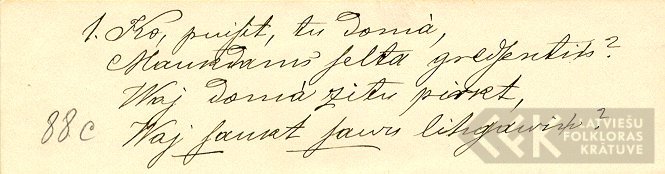 1. Ko, puiſit, tu domà,
Maukdams ſelta gredſentiņ?
Waj domà zitu pirkt,
88c
Waj ſaukt ſawu lihgawiņ?
LATVIEŠU
FOLKLORAS
KRĀTUVE